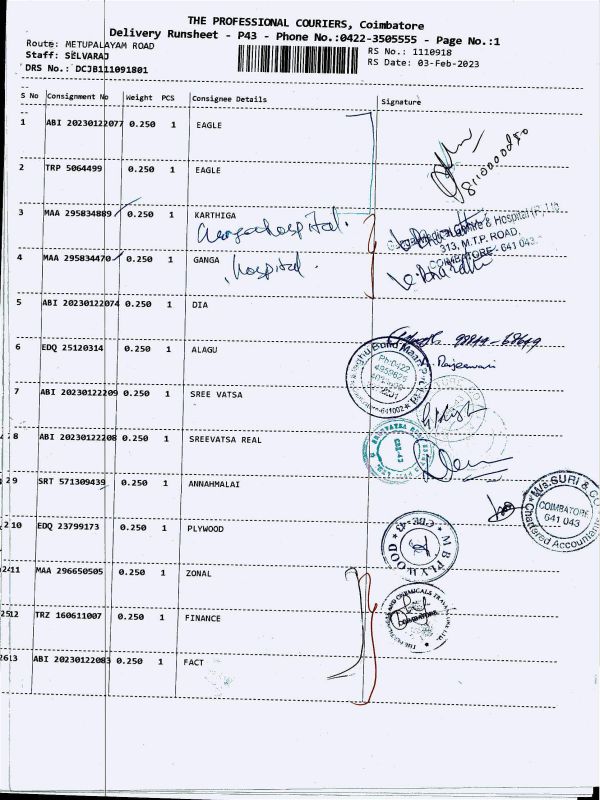 THE PROFESSIONAL COURIERS, Coimbatore
Delivery Runsheet - P43 - Phone No.:0422-3505555 - Page No.:1
Route: METUPALAYAM ROAD
RS No.: 1110918
Staff: SELVARAJ
RS Date: 03-Feb-2023
DRS No.: DCJB111091801
S No Consignment No Weight PCS Consignee Details Signature
1 ABI 20230122077 0.250 1 EAGLE
8110000080
2 TRP 5064499 0.250 1 EAGLE
3 MAA 295834889 0.250 1 KARTHIGA
Ganga hospital.
& Hospital (P) Ltd
313, M.T.P. ROAD,
COIMBATORE - 641 043.
4 MAA 295834470 0.250 1 GANGA
hospital.
5 ABI 20230122074 0.250 1 DIA
98844-68649
6 EDQ 25120314 0.250 1 ALAGU
Ph:0422
Coimbatore-641002
7 ABI 20230122209 0.250 1 SREE VATSA
8 ABI 20230122208 0.250 1 SREEVATSA REAL
CBE-43
29 SRT 571309439 0.250 1 ANNAHMALAI
M/s. SURI & CO
COIMBATORE
641 043
Chartered Accountants
210 EDQ 23799173 0.250 1 PLYWOOD
M B PLYWOOD
CBE-43
2411 MAA 296650505 0.250 1 ZONAL
2512 TRZ 160611007 0.250 1 FINANCE
AND CHEMICALS
2613 ABI 20230122083 0.250 1 FACT